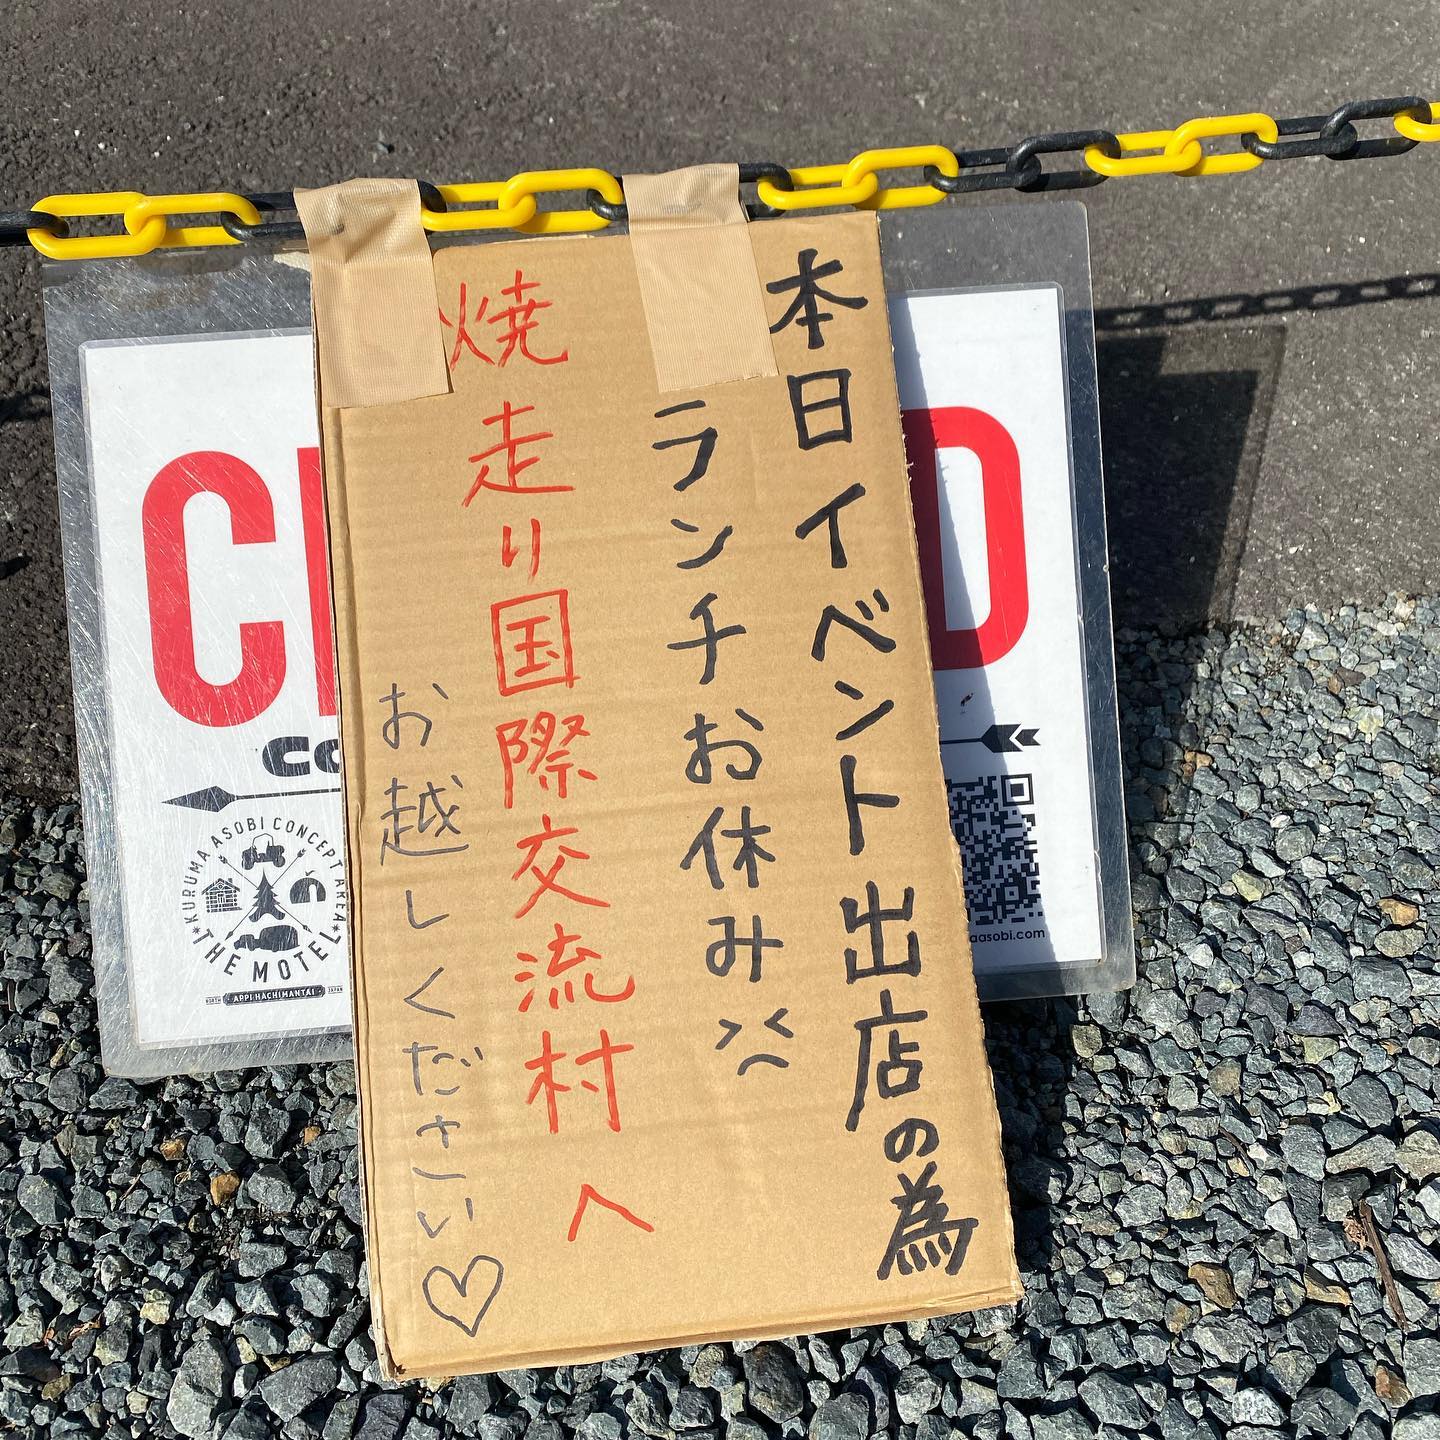 本日イベント出店の為
ランチお休み
焼走り国際交流村へ
お越しください♡
KURUMA ASOBI CONCEPT AREA
THE MOTEL
NORTH APPI.HACHIMANTAI JAPAN
aasobi.com